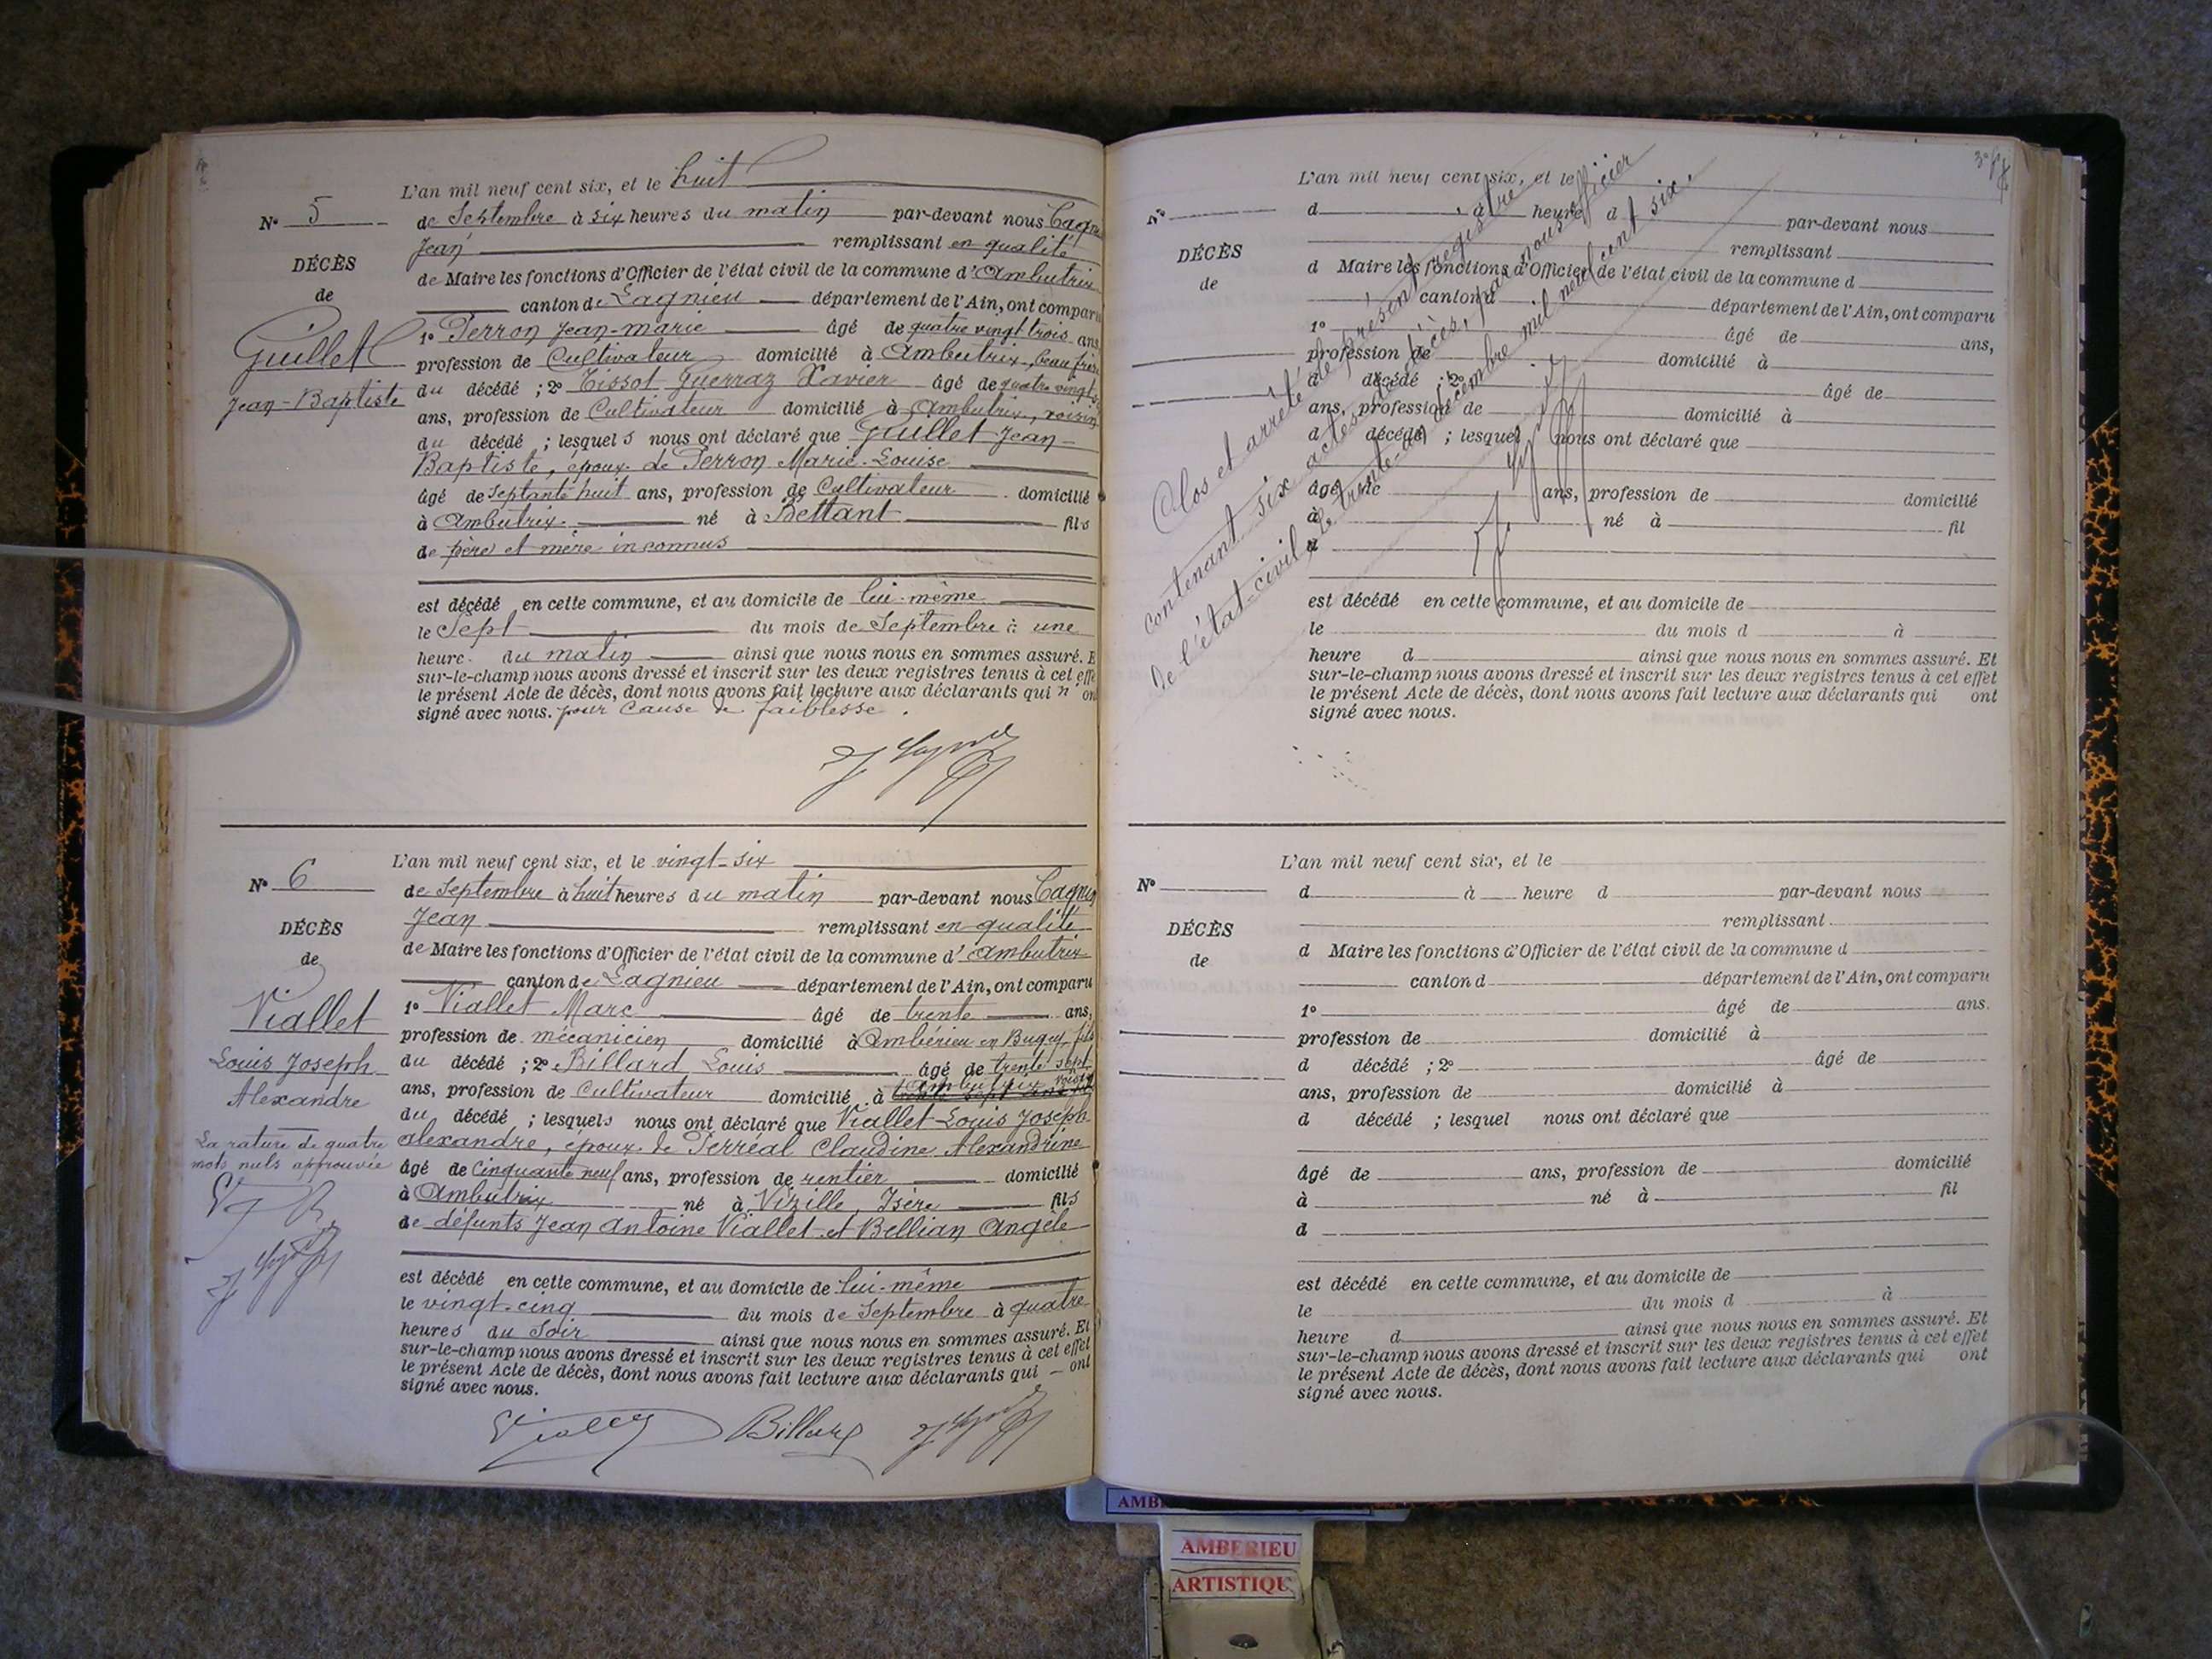 L'an mil neuf cent six, et le huit
N° 5
de Septembre à six heures du matin par-devant nous
Jean remplissant en qualité
DÉCÈS
de Maire les fonctions d'Officier de l'état civil de la commune d'Ambutrix
de
canton de Lagnieu département de l'Ain, ont comparu
1° Perron Jean-Marie âgé de quatre vingt trois ans
Guillet
profession de Cultivateur domicilié à Ambutrix, beau frère
Jean-Baptiste
du décédé ; 2° Tissot Guerraz Xavier âgé de quatre vingt
ans, profession de Cultivateur domicilié à Ambutrix, voisin
du décédé ; lesquels nous ont déclaré que Guillet Jean-
Baptiste, époux de Perron Marie-Louise
âgé de Septante huit ans, profession de Cultivateur domicilié
à Ambutrix né à Bettant fils
de père et mère inconnus
est décédé en cette commune, et au domicile de lui-même
le Sept du mois de Septembre à une
heure du matin ainsi que nous nous en sommes assuré. E
sur-le-champ nous avons dressé et inscrit sur les deux registres tenus à cet effe
le présent Acte de décès, dont nous avons fait lecture aux déclarants qui n'on
signé avec nous. pour cause de faiblesse.
L'an mil neuf cent six, et le vingt-six
N° 6
de Septembre à huit heures du matin par-devant nous
Jean remplissant en qualité
DÉCÈS
de Maire les fonctions d'Officier de l'état civil de la commune d'Ambutrix
de
canton de Lagnieu département de l'Ain, ont comparu
Viallet
1° Viallet Marc âgé de trente ans,
profession de mécanicien domicilié à Ambérieu en Bugey, fils
Louis Joseph
du décédé ; 2° Billard Louis âgé de trente sept
Alexandre
ans, profession de Cultivateur domicilié à Ambutrix voisin
du décédé ; lesquels nous ont déclaré que Viallet Louis Joseph
La rature de quatre
alexandre, époux de Perréal Claudine Alexandrine
mots nuls approuvée
âgé de Cinquante neuf ans, profession de rentier domicilié
à Ambutrix né à Vizille, Isère fils
de défunts Jean Antoine Viallet et Bellian Angèle
est décédé en cette commune, et au domicile de lui-même
le vingt-cinq du mois de Septembre à quatre
heures du Soir ainsi que nous nous en sommes assuré. Et
sur-le-champ nous avons dressé et inscrit sur les deux registres tenus à cet effet
le présent Acte de décès, dont nous avons fait lecture aux déclarants qui – ont
signé avec nous.
Billard
L'an mil neuf cent six, et le
N°
d à heure d par-devant nous
remplissant
DÉCÈS
d Maire les fonctions d'Officier de l'état civil de la commune d
de
canton d département de l'Ain, ont comparu
1° âgé de ans,
profession de domicilié à
d décédé ; 2° âgé de
ans, profession de domicilié à
d décédé ; lesquel nous ont déclaré que
âgé de ans, profession de domicilié
à né à fil
d
est décédé en cette commune, et au domicile de
le du mois d à
heure d ainsi que nous nous en sommes assuré. Et
sur-le-champ nous avons dressé et inscrit sur les deux registres tenus à cet effet
le présent Acte de décès, dont nous avons fait lecture aux déclarants qui ont
signé avec nous.
Clos et arrêté le présent registre
contenant six actes de décès, par nous officier
de l'état-civil le trente-un décembre mil neuf cent six.
L'an mil neuf cent six, et le
N°
d à heure d par-devant nous
remplissant
DÉCÈS
d Maire les fonctions d'Officier de l'état civil de la commune d
de
canton d département de l'Ain, ont comparu
1° âgé de ans.
profession de domicilié à
d décédé ; 2° âgé de
ans, profession de domicilié à
d décédé ; lesquel nous ont déclaré que
âgé de ans, profession de domicilié
à né à fil
d
est décédé en cette commune, et au domicile de
le du mois d à
heure d ainsi que nous nous en sommes assuré. Et
sur-le-champ nous avons dressé et inscrit sur les deux registres tenus à cet effet
le présent Acte de décès, dont nous avons fait lecture aux déclarants qui ont
signé avec nous.
AMB
AMBERIEU
ARTISTIQU